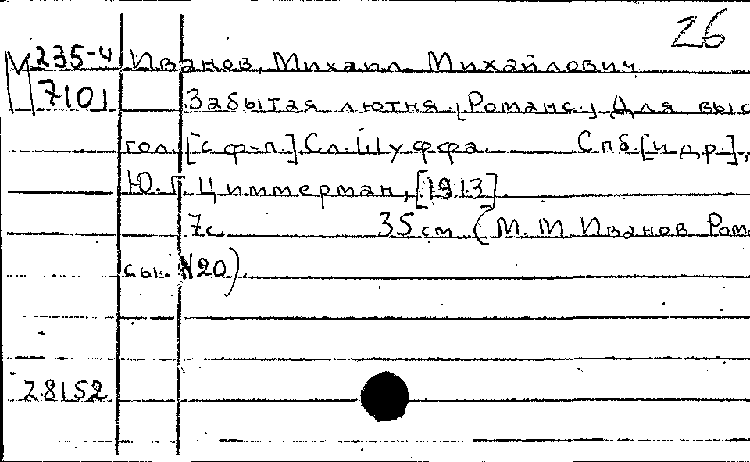 26
М 235-4 Иванов, Михаил Михайлович
7101 Забытая лютня. [Романс.] Для выс
гол. [с ф-п.] Сл. Шуффа. Спб. [и др.],
Ю. Г. Циммерман, [1913].
7с. 35 см (М. М. Иванов Ром
сы. №20).
28152